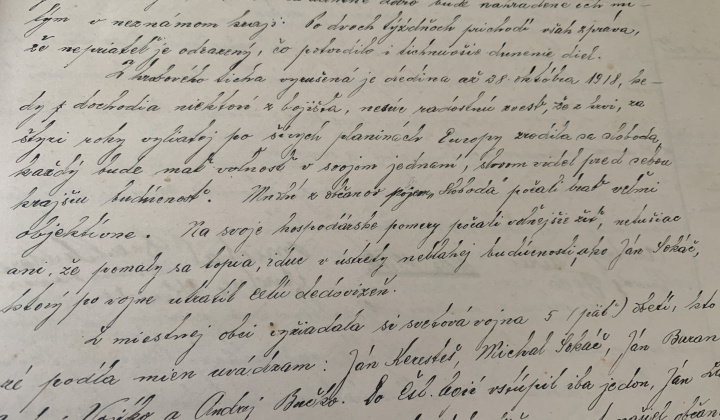 bude nahradené ich mi-
lým v neznámom kraji. Po dvoch týždňoch prichodí však zpráva,
že nepriateľ je odrazený, čo potvrdilo i tichnutie dunenie diel.
Z hrobového ticha vyrušená je dedina až 28. októbra 1918, ke-
dy dochodia niektorí z bojišťa, nesúc radostnú zvesť, že z krvi, za
štyri roky vyliatej po šírych planinách Europy zrodila sa sloboda,
každý bude mať voľnosť v svojom jednaní, videl pred sebou
krajšiu budúcnosť. Mnohí z občanov Slobodu počali brať veľmi
objektívne. Na svoje hospodárske pomery počali voľnejšie žiť, netušiac
ani, že pomaly sa topia, idúc v ústrety neblahej budúcnosti, ako Ján Sokáč,
ktorý po vojne utratil celú dedovizeň.
Z miestnej obci vyžiadala si svetová vojna 5 (päť) obetí, kto
ré podľa mien uvádzam: Ján Kerestéš, Michal Sokáč, Ján Baran
a Andrej Bučko. Do Čsl. legií vstúpil iba jedon, Ján